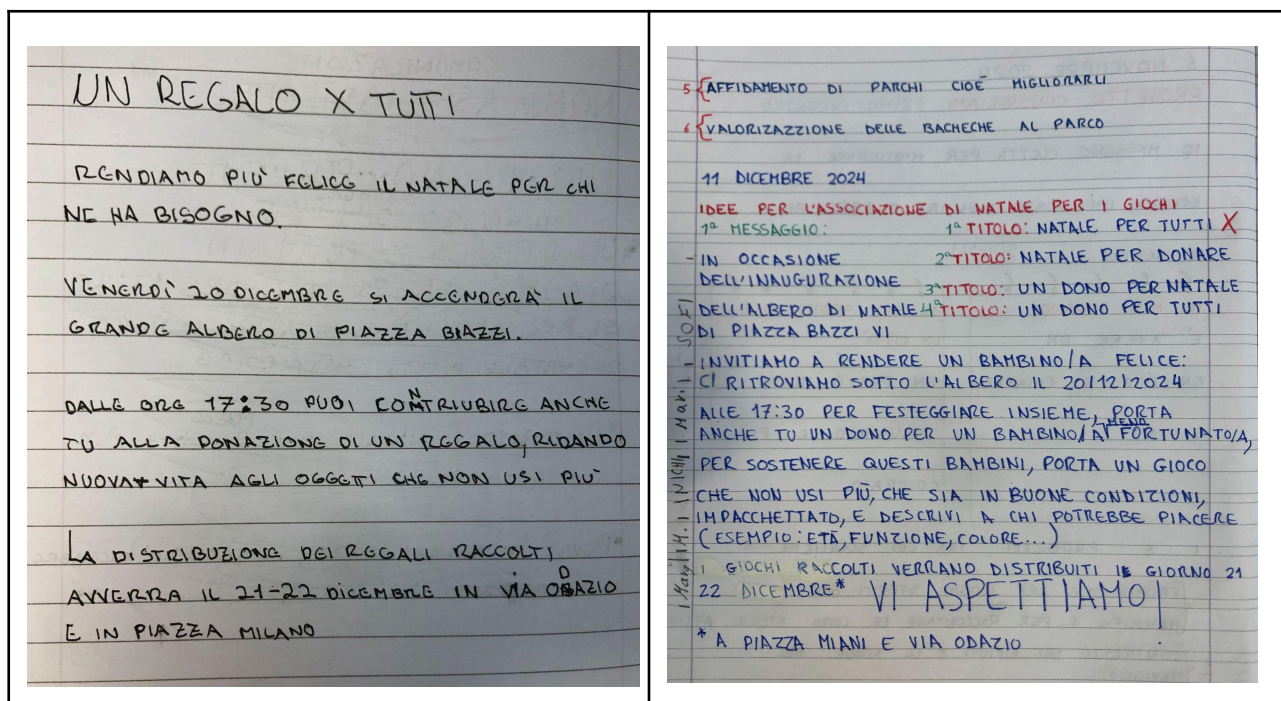 UN REGALO X TUTTI
RENDIAMO PIÙ FELICE IL NATALE PER CHI
NE HA BISOGNO.
VENERDÌ 20 DICEMBRE SI ACCENDERÀ IL
GRANDE ALBERO DI PIAZZA BIAZZI.
DALLE ORE 17:30 PUOI CONTRIUBIRE ANCHE
TU ALLA DONAZIONE DI UN REGALO, RIDANDO
NUOVA VITA AGLI OGGETTI CHE NON USI PIÙ
LA DISTRIBUZIONE DEI REGALI RACCOLTI,
AVVERRA IL 21-22 DICEMBRE IN VIA ODAZIO
E IN PIAZZA MILANO
5 { AFFIDAMENTO DI PARCHI CIOÈ MIGLIORARLI
6 { VALORIZAZZIONE DELLE BACHECHE AL PARCO
11 DICEMBRE 2024
IDEE PER L'ASSOCIAZIONE DI NATALE PER I GIOCHI
1ª MESSAGGIO: 1ª TITOLO: NATALE PER TUTTI X
- IN OCCASIONE 2ª TITOLO: NATALE PER DONARE
DELL'INAUGURAZIONE 3ª TITOLO: UN DONO PER NATALE
DELL'ALBERO DI NATALE 4ª TITOLO: UN DONO PER TUTTI
DI PIAZZA BAZZI VI
INVITIAMO A RENDERE UN BAMBINO/A FELICE:
CI RITROVIAMO SOTTO L'ALBERO IL 20/12/2024
ALLE 17:30 PER FESTEGGIARE INSIEME, PORTA
ANCHE TU UN DONO PER UN BAMBINO/A MENO FORTUNATO/A,
PER SOSTENERE QUESTI BAMBINI, PORTA UN GIOCO
CHE NON USI PIÙ, CHE SIA IN BUONE CONDIZIONI,
IMPACCHETTATO, E DESCRIVI A CHI POTREBBE PIACERE
(ESEMPIO: ETÀ, FUNZIONE, COLORE...)
I GIOCHI RACCOLTI VERRANO DISTRIBUITI IL GIORNO 21
22 DICEMBRE* VI ASPETTIAMO!
* A PIAZZA MIANI E VIA ODAZIO